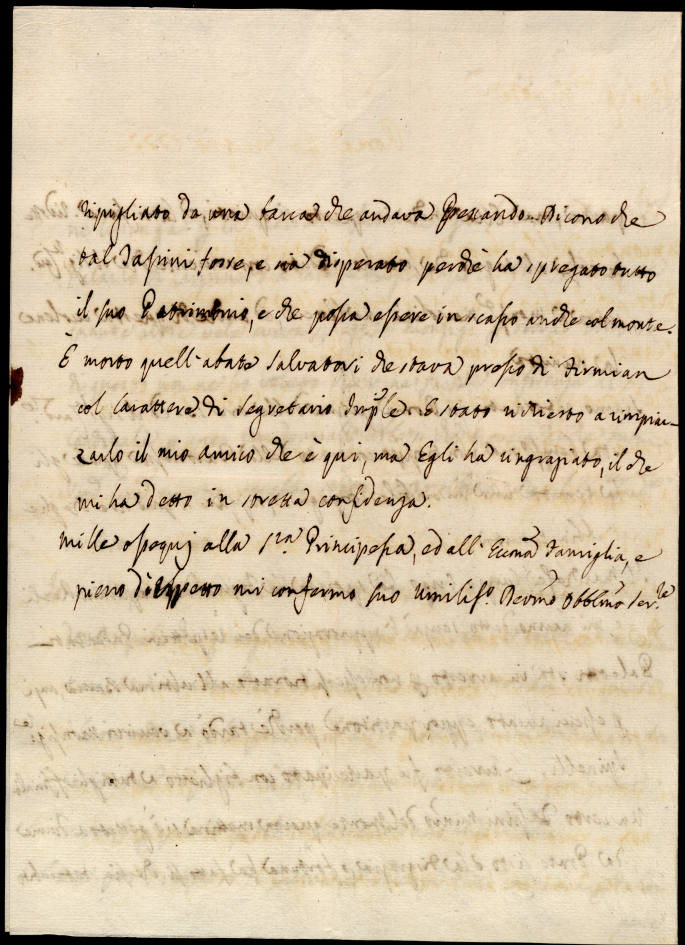 ripigliato da una barca che andava pescando. Dicono che
tal Tassini fosse, e sia disperato perchè ha spregato tutto
il suo Patrimonio, e che possa essere in scapo anche col monte.
È morto quell'abate Salvatori che stava presso di Firmian
col Carattere di Segretario Imp.le. È stato richiesto a rimpiaz-
zarlo il mio amico che è qui, ma Egli ha ringraziato, il che
mi ha detto in stretta confidenza.
Mille ossequj alla S.ra Principessa, ed all' Eccma Famiglia, e
pieno di rispetto mi confermo suo Umiliss.o Devmo Obblmo Ser.le